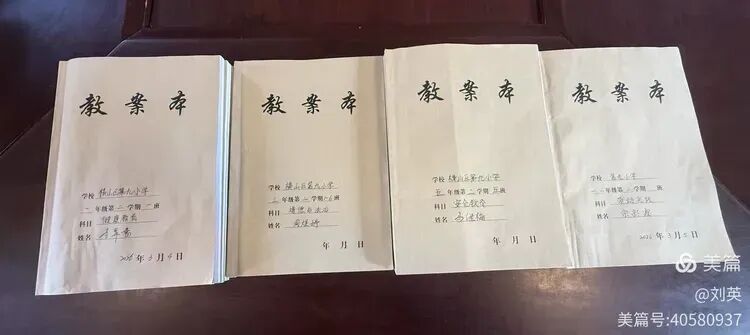 教案本
学校 横山区第九小学
一年级第二学期一班
科目 健康教育
姓名
2026年3月4日
教案本
学校 横山区第九小学
年级第二学期1-6班
科目 道德与法治
姓名
年 月 日
教案本
学校 横山区第九小学
五年级第二学期五班
科目 安全教育
姓名
年 月 日
教案本
学校 第九小学
年级第二学期 班
科目 劳动
姓名
2026年3月5日
美篇
@刘英
美篇号:40580937